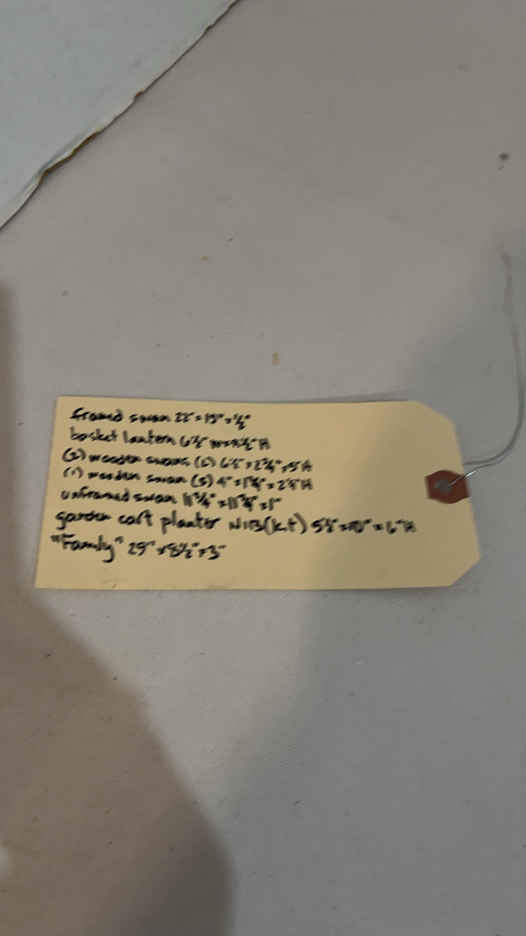 framed swan 22" x 19" x ½"
basket lantern H
(2) wooden swans (L) x 2¾" x 9"H
(1) wooden swan (S) 4" x H
unframed swan 11¾" x 11¾" x 1"
garden cart planter NIB (k.t) x 10" x 6"H
"Family" 29" x 8½" x 3"